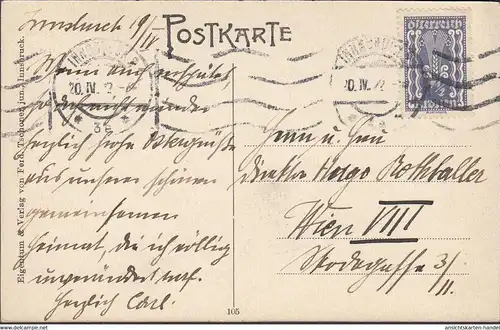 Innsbruck 19/IV
POSTKARTE
INNSBRUCK
20. IV. 2
INNSBRUCK
20. IV. 2
österreich
Wenn auch
so wieder
herzlich frohe Ostergrüße
aus unserer schönen
gemeinsamen
Heimat, die ich völlig
unverändert
Herzlich Carl.
Herrn u. Frau
Direktor Rothballer
Wien VIII
3/
II.
Eigentum & Verlag von Ferd. Tschoner jun., Innsbruck.
105
ansichtskarten-handel.com